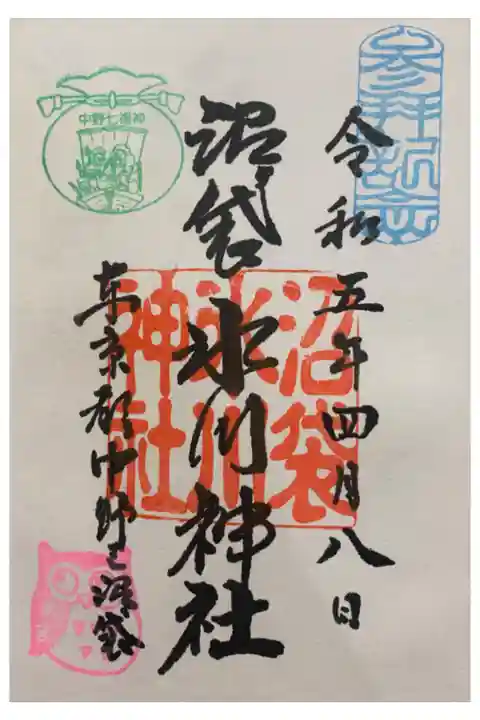 参拝記念
令和五年四月八日
沼袋氷川神社
沼袋
氷川
神社
中野七福神
東京都中野区沼袋